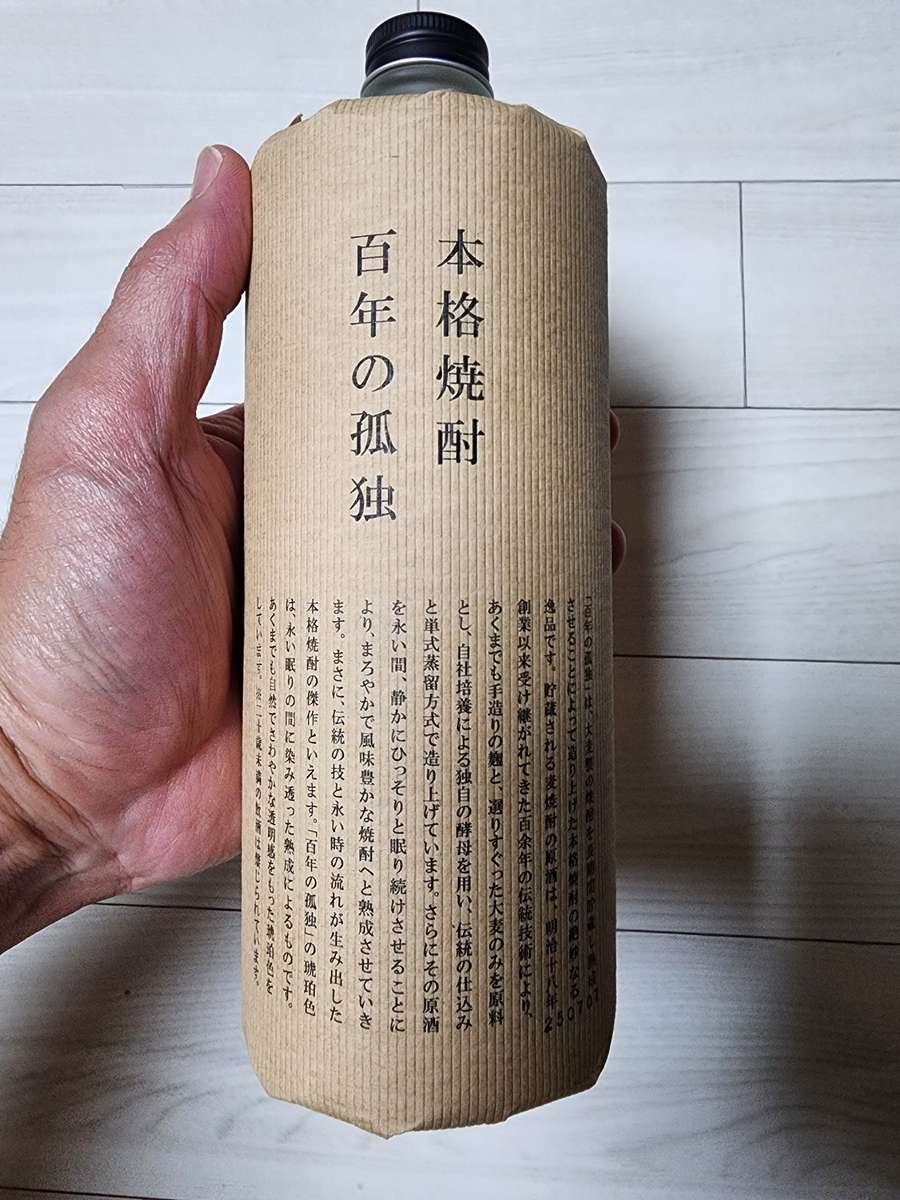 本格焼酎
百年の孤独
「百年の孤独」は、大麦製の焼酎を長期間貯蔵し熟成
させることによって造り上げた本格焼酎の絶妙なる
逸品です。貯蔵される麦焼酎の原酒は、明治十八年
創業以来受け継がれてきた百余年の伝統技術により、
あくまでも手造りの麹と、選りすぐった大麦のみを原料
とし、自社培養による独自の酵母を用い、伝統の仕込み
と単式蒸留方式で造り上げています。さらにその原酒
を永い間、静かにひっそりと眠り続けさせることに
より、まろやかで風味豊かな焼酎へと熟成させていき
ます。まさに、伝統の技と永い時の流れが生み出した
本格焼酎の傑作といえます。「百年の孤独」の琥珀色
は、永い眠りの間に染み透った熟成によるものです。
あくまでも自然でさわやかな透明感をもった琥珀色を
しています。 二十歳未満の飲酒は禁じられています。